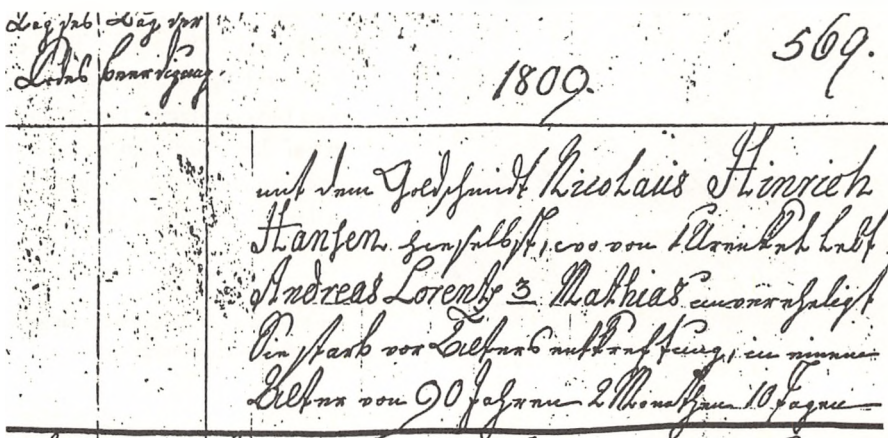 Tag des Tag der
Todes beerdigung.
1809.
569.
mit dem Goldschmidt Nicolaus Hinrich
Hansen hieselbst, wo von 1 Urenkel lebt.
Andreas Lorentz 3 Mathias unverehligt
Sie starb vor Altersentkreftung, in einem
Alter von 90 Jahren 2 Monathen 10 Tagen